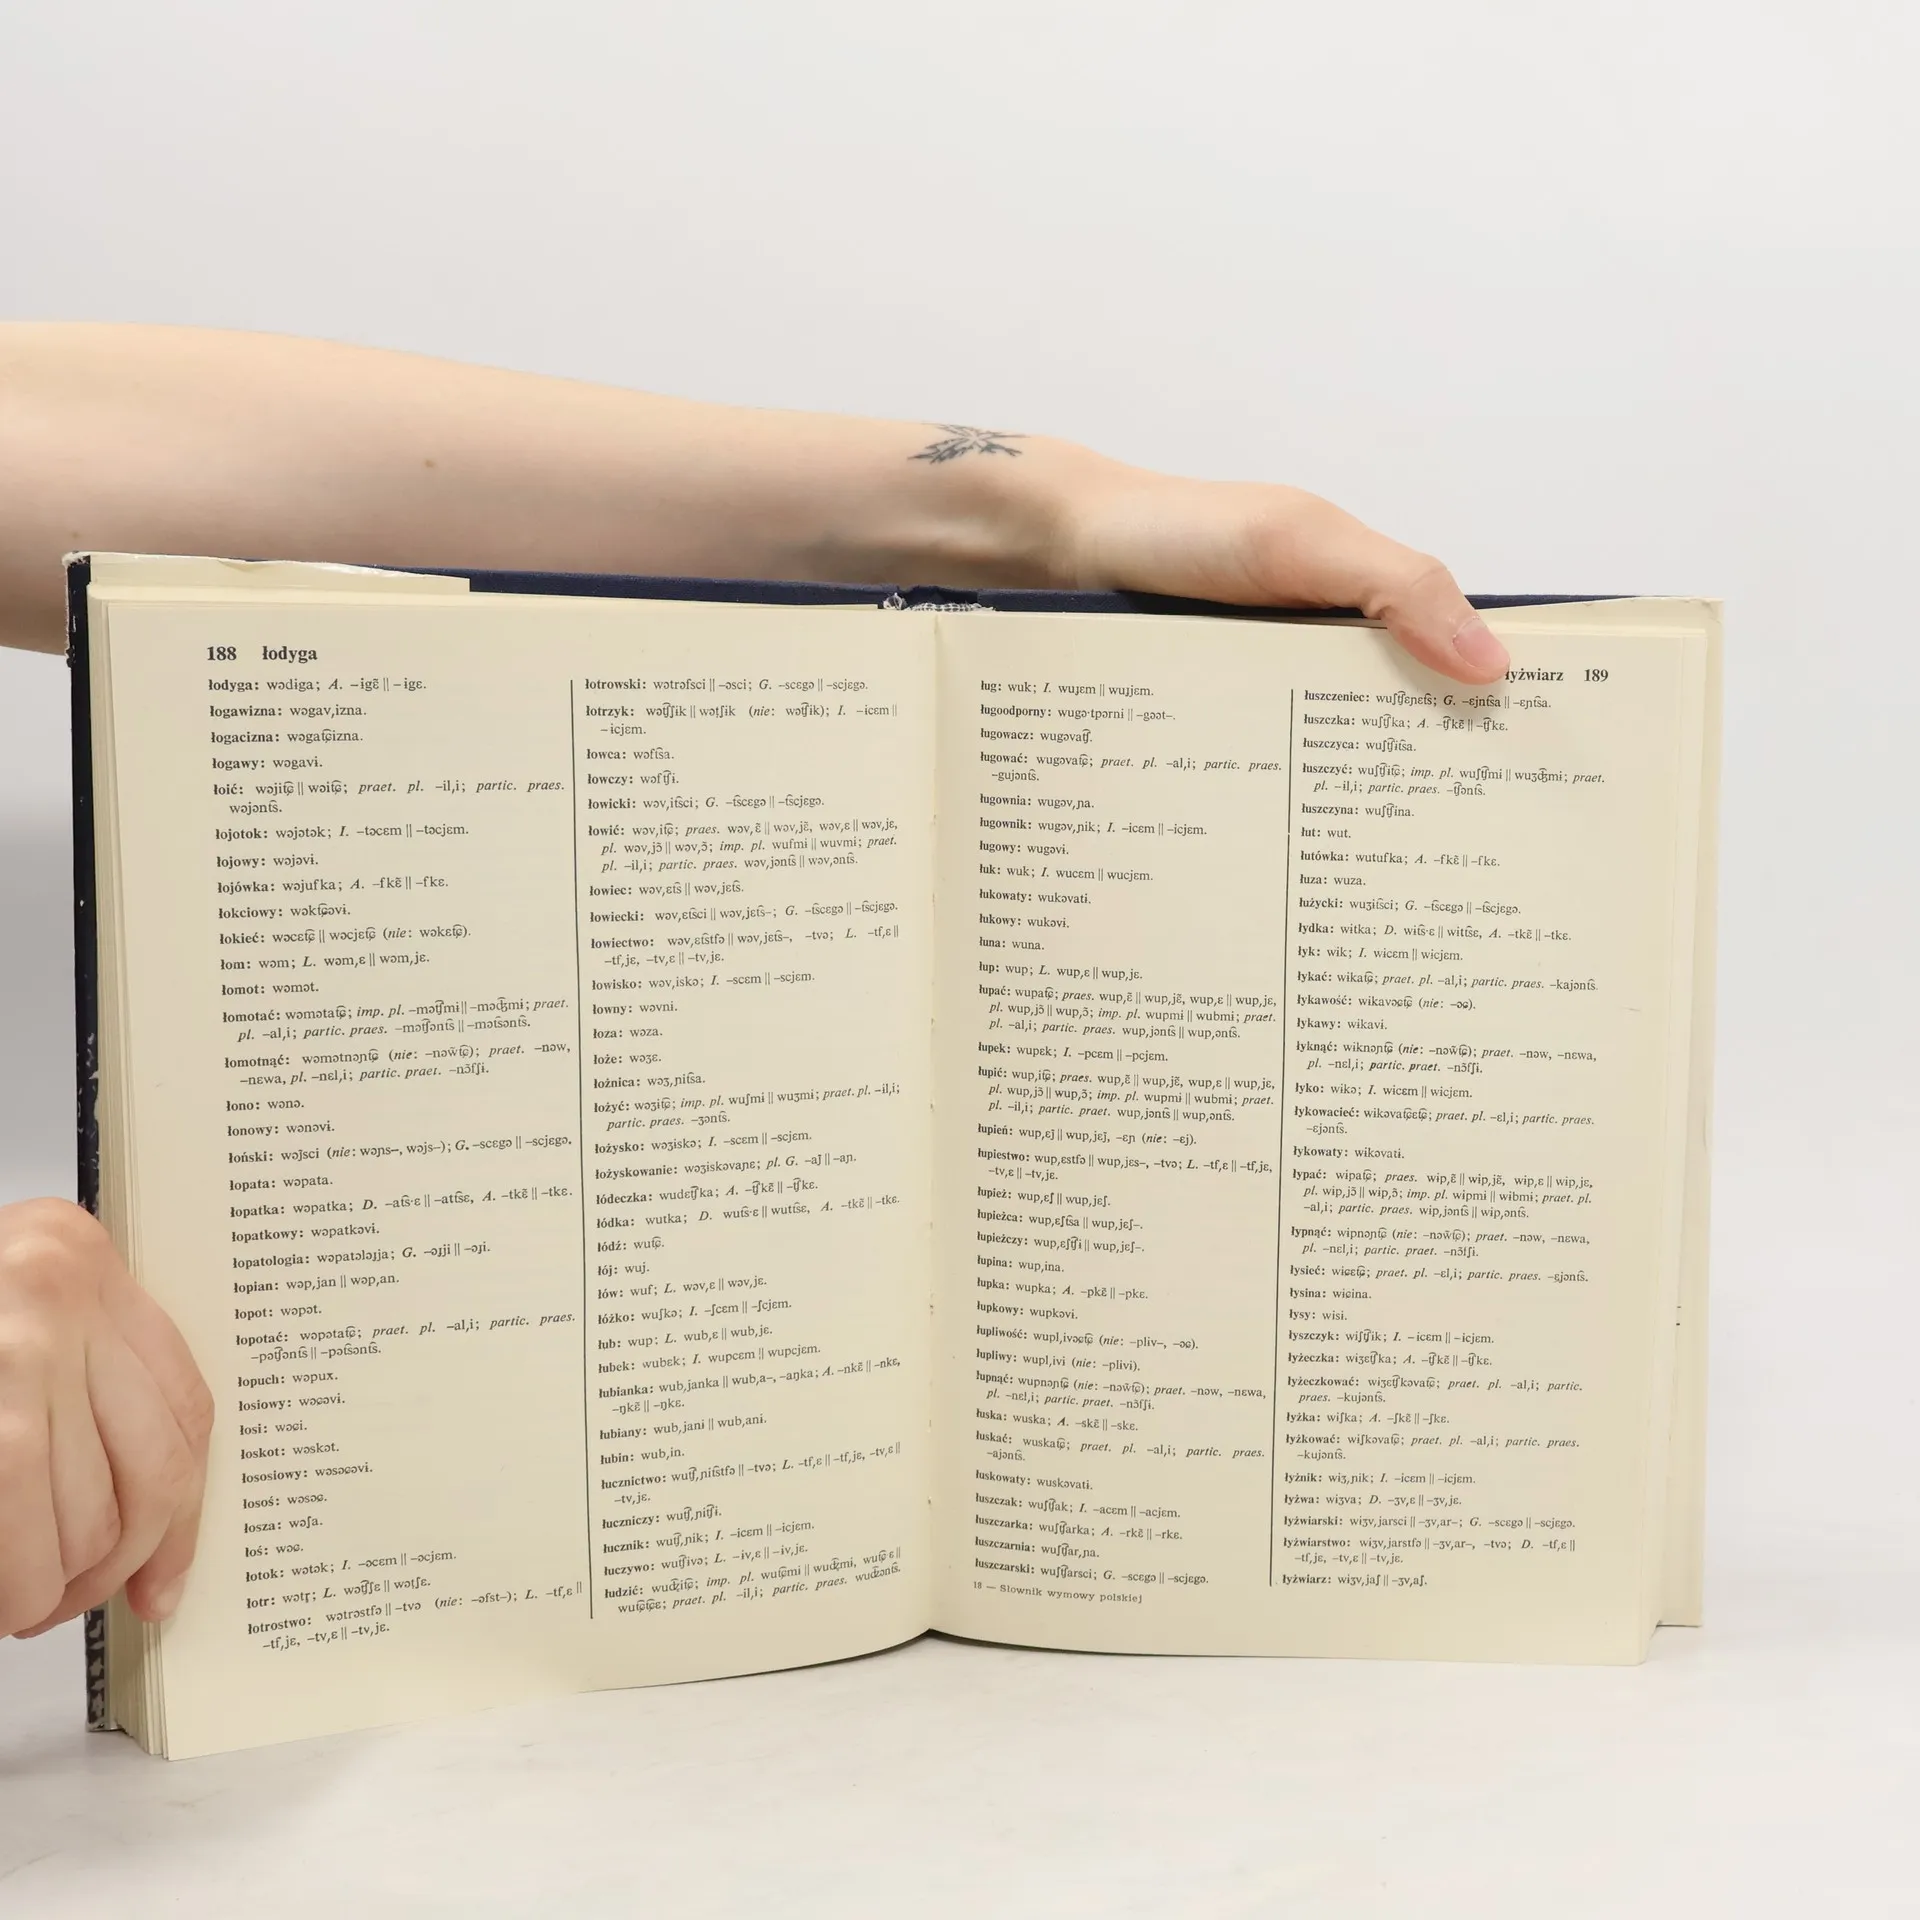 188 łodyga
łodyga: wɔdiga; A. –igɛ̃ || –igɛ.
łogawizna: wɔgav,izna.
łogacizna: wɔgat͡ɕizna.
łogawy: wɔgavi.
łoić: wɔjit͡ɕ || wɔit͡ɕ; praet. pl. –il,i; partic. praes.
wɔjɔnt͡s.
łojotok: wɔjɔtɔk; I. –tɔcɛm || –tɔcjɛm.
łojowy: wɔjɔvi.
łojówka: wɔjufka; A. –fkɛ̃ || –fkɛ.
łokciowy: wɔkt͡ɕɔvi.
łokieć: wɔcɛt͡ɕ || wɔcjɛt͡ɕ (nie: wɔkɛt͡ɕ).
łom: wɔm; L. wɔm,ɛ || wɔm,jɛ.
łomot: wɔmɔt.
łomotać: wɔmɔtat͡ɕ; imp. pl. –mɔt͡ʃmi || –mɔd͡ʒmi; praet.
pl. –al,i; partic. praes. –mɔt͡ʃɔnt͡s || –mɔt͡sɔnt͡s.
łomotnąć: wɔmɔtnɔɲt͡ɕ (nie: –nɔw̃t͡ɕ); praet. –nɔw,
–nɛwa, pl. –nɛl,i; partic. praet. –nɔ̃fʃi.
łono: wɔnɔ.
łonowy: wɔnɔvi.
łoński: wɔj̃sci (nie: wɔɲs–, wɔjs–); G. –scɛgɔ || –scjɛgɔ.
łopata: wɔpata.
łopatka: wɔpatka; D. –at͡s·ɛ || –att͡sɛ, A. –tkɛ̃ || –tkɛ.
łopatkowy: wɔpatkɔvi.
łopatologia: wɔpatɔlɔɟja; G. –ɔɟji || –ɔɟi.
łopian: wɔp,jan || wɔp,an.
łopot: wɔpɔt.
łopotać: wɔpɔtat͡ɕ; praet. pl. –al,i; partic. praes.
–pɔt͡ʃɔnt͡s || –pɔt͡sɔnt͡s.
łopuch: wɔpux.
łosiowy: wɔɕɔvi.
łosi: wɔɕi.
łoskot: wɔskɔt.
łososiowy: wɔsɔɕɔvi.
łosoś: wɔsɔɕ.
łosza: wɔʃa.
łoś: wɔɕ.
łotok: wɔtɔk; I. –ɔcɛm || –ɔcjɛm.
łotr: wɔtr̥; L. wɔt͡ʃʃɛ || wɔtʃɛ.
łotrostwo: wɔtrɔstfɔ || –tvɔ (nie: –ɔfst–); L. –tf,ɛ ||
–tf,jɛ, –tv,ɛ || –tv,jɛ.
łotrowski: wɔtrɔfsci || –ɔsci; G. –scɛgɔ || –scjɛgɔ.
łotrzyk: wɔt͡ʃʃik || wɔtʃik (nie: wɔt͡ʃik); I. –icɛm ||
–icjɛm.
łowca: wɔft͡sa.
łowczy: wɔft͡ʃi.
łowicki: wɔv,it͡sci; G. –t͡scɛgɔ || –t͡scjɛgɔ.
łowić: wɔv,it͡ɕ; praes. wɔv,ɛ̃ || wɔv,jɛ̃, wɔv,ɛ || wɔv,jɛ,
pl. wɔv,jɔ̃ || wɔv,ɔ̃; imp. pl. wufmi || wuvmi; praet.
pl. –il,i; partic. praes. wɔv,jɔnt͡s || wɔv,ɔnt͡s.
łowiec: wɔv,ɛt͡s || wɔv,jɛt͡s.
łowiecki: wɔv,ɛt͡sci || wɔv,jɛt͡s–; G. –t͡scɛgɔ || –t͡scjɛgɔ.
łowiectwo: wɔv,ɛt͡stfɔ || wɔv,jɛt͡s–, –tvɔ; L. –tf,ɛ ||
–tf,jɛ, –tv,ɛ || –tv,jɛ.
łowisko: wɔv,iskɔ; I. –scɛm || –scjɛm.
łowny: wɔvni.
łoza: wɔza.
łoże: wɔʒɛ.
łożnica: wɔʒ,ɲit͡sa.
łożyć: wɔʒit͡ɕ; imp. pl. wuʃmi || wuʒmi; praet. pl. –il,i;
partic. praes. –ʒɔnt͡s.
łożysko: wɔʒiskɔ; I. –scɛm || –scjɛm.
łożyskowanie: wɔʒiskɔvaɲɛ; pl. G. –aj̃ || –aɲ.
łódeczka: wudɛt͡ʃka; A. –t͡ʃkɛ̃ || –t͡ʃkɛ.
łódka: wutka; D. wut͡s·ɛ || wutt͡sɛ, A. –tkɛ̃ || –tkɛ.
łódź: wut͡ɕ.
łój: wuj.
łów: wuf; L. wɔv,ɛ || wɔv,jɛ.
łóżko: wuʃkɔ; I. –ʃcɛm || –ʃcjɛm.
łub: wup; L. wub,ɛ || wub,jɛ.
łubek: wubɛk; I. wupcɛm || wupcjɛm.
łubianka: wub,janka || wub,a–, –aŋka; A. –nkɛ̃ || –nkɛ,
–ŋkɛ̃ || –ŋkɛ.
łubiany: wub,jani || wub,ani.
łubin: wub,in.
łucznictwo: wut͡ʃ,ɲit͡stfɔ || –tvɔ; L. –tf,ɛ || –tf,jɛ, –tv,ɛ ||
–tv,jɛ.
łuczniczy: wut͡ʃ,ɲit͡ʃi.
łucznik: wut͡ʃ,ɲik; I. –icɛm || –icjɛm.
łuczywo: wut͡ʃivɔ; L. –iv,ɛ || –iv,jɛ.
łudzić: wud͡ʑit͡ɕ; imp. pl. wut͡ɕmi || wud͡ʑmi, wut͡ɕ·ɛ ||
wut͡ɕt͡ɕɛ; praet. pl. –il,i; partic. praes. wud͡zɔnt͡s.
łyżwiarz 189
ług: wuk; I. wuɟɛm || wuɟjɛm.
ługoodporny: wugɔ·tpɔrni || –gɔɔt–.
ługowacz: wugɔvat͡ʃ.
ługować: wugɔvat͡ɕ; praet. pl. –al,i; partic. praes.
–gujɔnt͡s.
ługownia: wugɔv,ɲa.
ługownik: wugɔv,ɲik; I. –icɛm || –icjɛm.
ługowy: wugɔvi.
łuk: wuk; I. wucɛm || wucjɛm.
łukowaty: wukɔvati.
łukowy: wukɔvi.
łuna: wuna.
łup: wup; L. wup,ɛ || wup,jɛ.
łupać: wupat͡ɕ; praes. wup,ɛ̃ || wup,jɛ̃, wup,ɛ || wup,jɛ,
pl. wup,jɔ̃ || wup,ɔ̃; imp. pl. wupmi || wubmi; praet.
pl. –al,i; partic. praes. wup,jɔnt͡s || wup,ɔnt͡s.
łupek: wupɛk; I. –pcɛm || –pcjɛm.
łupić: wup,it͡ɕ; praes. wup,ɛ̃ || wup,jɛ̃, wup,ɛ || wup,jɛ,
pl. wup,jɔ̃ || wup,ɔ̃; imp. pl. wupmi || wubmi; praet.
pl. –il,i; partic. praet. wup,jɔnt͡s || wup,ɔnt͡s.
łupień: wup,ɛj̃ || wup,jɛj̃, –ɛɲ (nie: –ɛj).
łupiestwo: wup,ɛstfɔ || wup,jɛs–, –tvɔ; L. –tf,ɛ || –tf,jɛ,
–tv,ɛ || –tv,jɛ.
łupież: wup,ɛʃ || wup,jɛʃ.
łupieżca: wup,ɛʃt͡sa || wup,jɛʃ–.
łupieżczy: wup,ɛʃt͡ʃi || wup,jɛʃ–.
łupina: wup,ina.
łupka: wupka; A. –pkɛ̃ || –pkɛ.
łupkowy: wupkɔvi.
łupliwość: wupl,ivɔɕt͡ɕ (nie: –pliv–, –ɔɕ).
łupliwy: wupl,ivi (nie: –plivi).
łupnąć: wupnɔɲt͡ɕ (nie: –nɔw̃t͡ɕ); praet. –nɔw, –nɛwa,
pl. –nɛl,i; partic. praet. –nɔ̃fʃi.
łuska: wuska; A. –skɛ̃ || –skɛ.
łuskać: wuskat͡ɕ; praet. pl. –al,i; partic. praes.
–ajɔnt͡s.
łuskowaty: wuskɔvati.
łuszczak: wuʃt͡ʃak; I. –acɛm || –acjɛm.
łuszczarka: wuʃt͡ʃarka; A. –rkɛ̃ || –rkɛ.
łuszczarnia: wuʃt͡ʃar,ɲa.
łuszczarski: wuʃt͡ʃarsci; G. –scɛgɔ || –scjɛgɔ.
18 — Słownik wymowy polskiej
łuszczeniec: wuʃt͡ʃɛɲɛt͡s; G. –ɛjnt͡sa || –ɛɲt͡sa.
łuszczka: wuʃt͡ʃka; A. –t͡ʃkɛ̃ || –t͡ʃkɛ.
łuszczyca: wuʃt͡ʃit͡sa.
łuszczyć: wuʃt͡ʃit͡ɕ; imp. pl. wuʃt͡ʃmi || wuʒd͡ʒmi; praet.
pl. –il,i; partic. praes. –t͡ʃɔnt͡s.
łuszczyna: wuʃt͡ʃina.
łut: wut.
łutówka: wutufka; A. –fkɛ̃ || –fkɛ.
łuza: wuza.
łużycki: wuʒit͡sci; G. –t͡scɛgɔ || –t͡scjɛgɔ.
łydka: witka; D. wit͡s·ɛ || witt͡sɛ, A. –tkɛ̃ || –tkɛ.
łyk: wik; I. wicɛm || wicjɛm.
łykać: wikat͡ɕ; praet. pl. –al,i; partic. praes. –kajɔnt͡s.
łykawość: wikavɔɕt͡ɕ (nie: –ɔɕ).
łykawy: wikavi.
łyknąć: wiknɔɲt͡ɕ (nie: –nɔw̃t͡ɕ); praet. –nɔw, –nɛwa,
pl. –nɛl,i; partic. praet. –nɔ̃fʃi.
łyko: wikɔ; I. wicɛm || wicjɛm.
łykowacieć: wikɔvat͡ɕɛt͡ɕ; praet. pl. –ɛl,i; partic. praes.
–ɛjɔnt͡s.
łykowaty: wikɔvati.
łypać: wipat͡ɕ; praes. wip,ɛ̃ || wip,jɛ̃, wip,ɛ || wip,jɛ,
pl. wip,jɔ̃ || wip,ɔ̃; imp. pl. wipmi || wibmi; praet. pl.
–al,i; partic. praes. wip,jɔnt͡s || wip,ɔnt͡s.
łypnąć: wipnɔɲt͡ɕ (nie: –nɔw̃t͡ɕ); praet. –nɔw, –nɛwa,
pl. –nɛl,i; partic. praet. –nɔ̃fʃi.
łysieć: wiɕɛt͡ɕ; praet. pl. –ɛl,i; partic. praes. –ɛjɔnt͡s.
łysina: wiɕina.
łysy: wisi.
łyszczyk: wiʃt͡ʃik; I. –icɛm || –icjɛm.
łyżeczka: wiʒɛt͡ʃka; A. –t͡ʃkɛ̃ || –t͡ʃkɛ.
łyżeczkować: wiʒɛt͡ʃkɔvat͡ɕ; praet. pl. –al,i; partic.
praes. –kujɔnt͡s.
łyżka: wiʃka; A. –ʃkɛ̃ || –ʃkɛ.
łyżkować: wiʃkɔvat͡ɕ; praet. pl. –al,i; partic. praes.
–kujɔnt͡s.
łyżnik: wiʒ,ɲik; I. –icɛm || –icjɛm.
łyżwa: wiʒva; D. –ʒv,ɛ || –ʒv,jɛ.
łyżwiarski: wiʒv,jarsci || –ʒv,ar–; G. –scɛgɔ || –scjɛgɔ.
łyżwiarstwo: wiʒv,jarstfɔ || –ʒv,ar–, –tvɔ; D. –tf,ɛ ||
–tf,jɛ, –tv,ɛ || –tv,jɛ.
łyżwiarz: wiʒv,jaʃ || –ʒv,aʃ.